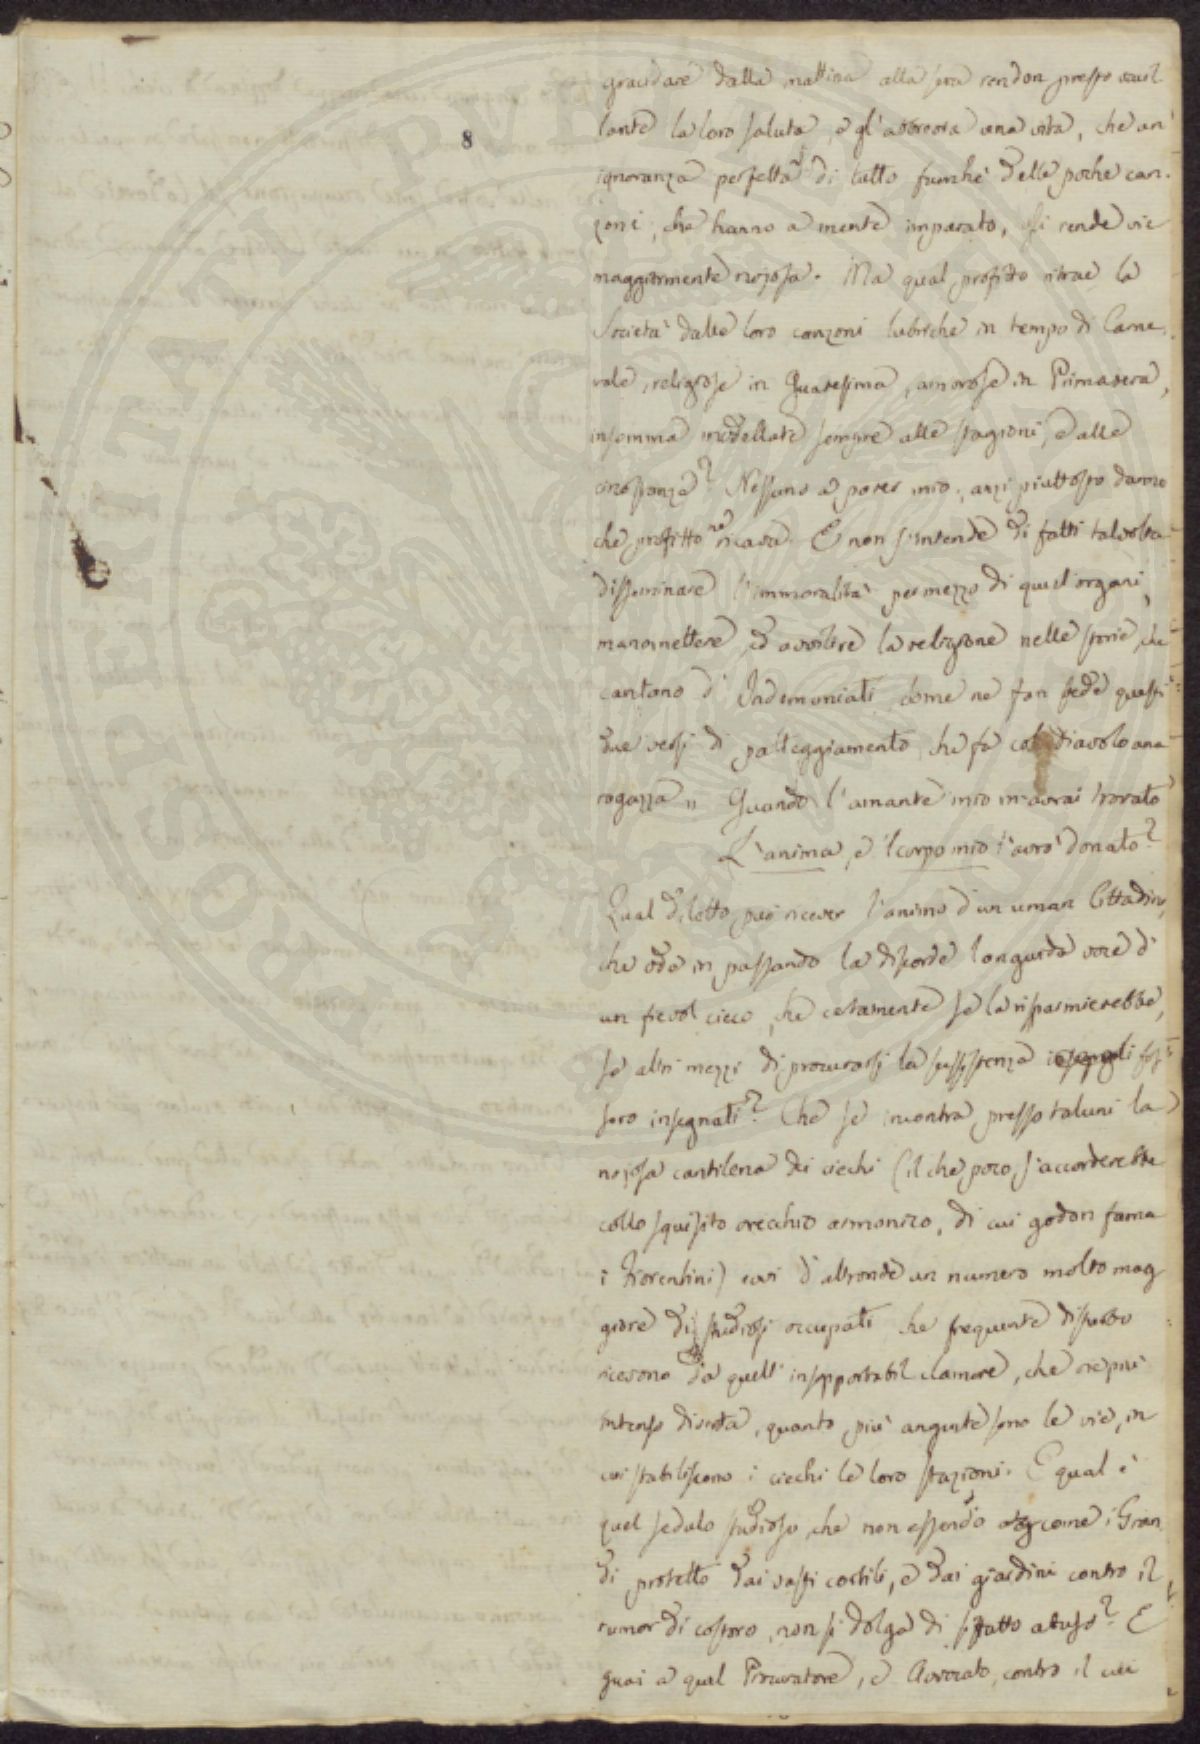 8
gracidare dalla mattina alla sera rendon presso vacil
lante la loro salute, e gl'abbrevia una vita, che un'
ignoranza perfetta di tutto fuorchè delle poche can-
zoni, che hanno a mente imparato, si rende vie
maggiormente nojosa. Ma qual profitto ritrae la
Società dalle loro canzoni lubriche in tempo di Carne-
vale, religiose in Quaresima, amorose in Primavera,
insomma modellate sempre alle stagioni, e alle
circostanze? Nessuno a parer mio, anzi piuttosto danno
che profitto ne ricava. E non s'intende di fatti talvolta
disseminare l'immoralità per mezzo di quest'organi,
manomettere, ed avvilire la religione nelle storie, che
cantano d'Indemoniati come ne fan fede questi
due versi di patteggiamento che fa col diavolo una
ragazza „ Quando l'amante mio m'avrai trovato
L'anima, e 'l corpo mio t'avrò donato?
Qual diletto può ricever l'animo d'un uman Cittadino,
che oda in passando la discorde languida voce d'
un fievol cieco, che certamente se la risparmierebbe,
se altri mezzi di procurarsi la sussistenza fos-
sero insegnati? Che se incontra presso taluni la
nojosa cantilena dei ciechi (il che poco s'accorderebbe
collo squisito orecchio armonico, di cui godon fama
i Fiorentini) evvi d'altronde un numero molto mag
giore di studiosi occupati che frequente disturbo
ricevono da quell'insopportabil clamore, che vie più
intenso diventa, quanto più anguste sono le vie, in
cui stabiliscono i ciechi le loro stazioni. E qual è
quel sedulo studioso, che non essendo come i Gran
di protetto dai vasti cortili, e dai giardini contro il
rumor di costoro, non si dolga di sì fatto abuso? E
guai a qual Procuratore, e Avvocato, contro il cui